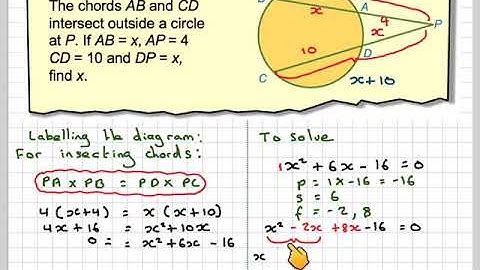 The chords AB and CD
intersect outside a circle
at P. If AB = x, AP = 4
CD = 10 and DP = x,
find x.
A
x
4
x
P
10
D
C
x+10
Labelling the diagram:
For insecting chords:
PA × PB = PD × PC
4(x+4) = x(x+10)
4x + 16 = x² + 10x
0 = x² + 6x - 16
To solve
1x² + 6x - 16 = 0
p = 1x - 16 = -16
s = 6
f = -2, 8
x² - 2x + 8x - 16 = 0
x